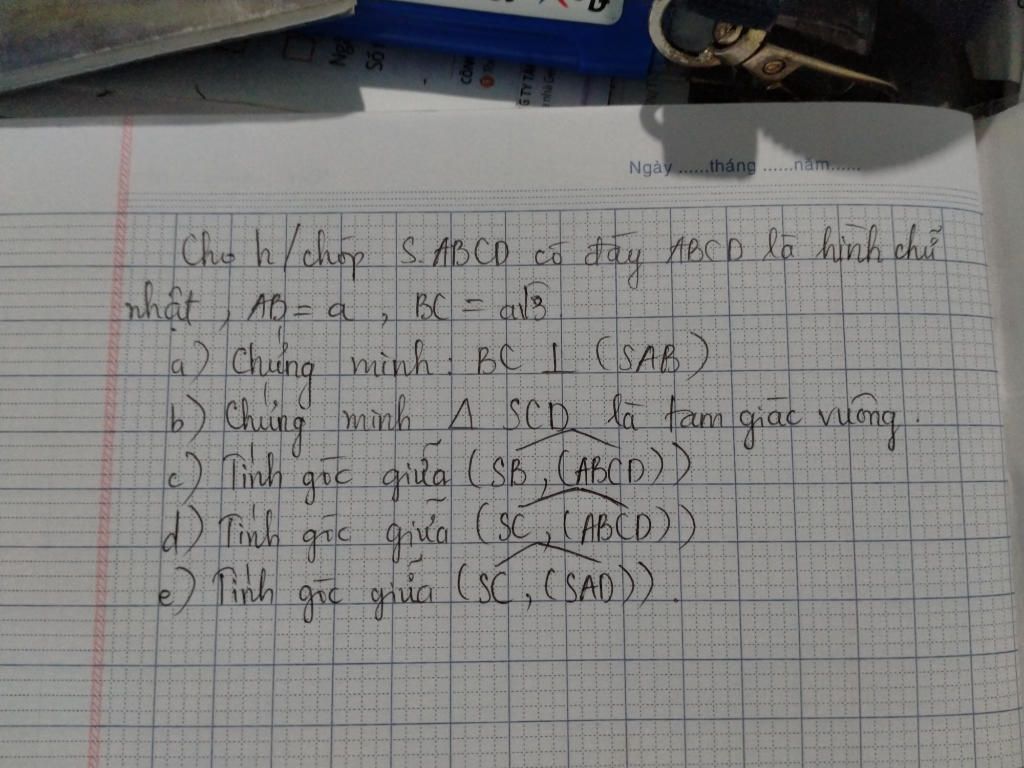 Ngày ......tháng ......năm......
Cho h/chóp S.ABCD có đáy ABCD là hình chữ
nhật, AB = a, BC = a√3
a) Chứng minh: BC ⊥ (SAB)
b) Chứng minh Δ SCD là tam giác vuông.
c) Tính góc giữa (SB, (ABCD))
d) Tính góc giữa (SC, (ABCD))
e) Tính góc giữa (SC, (SAD)).